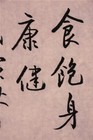 食饱身
康健